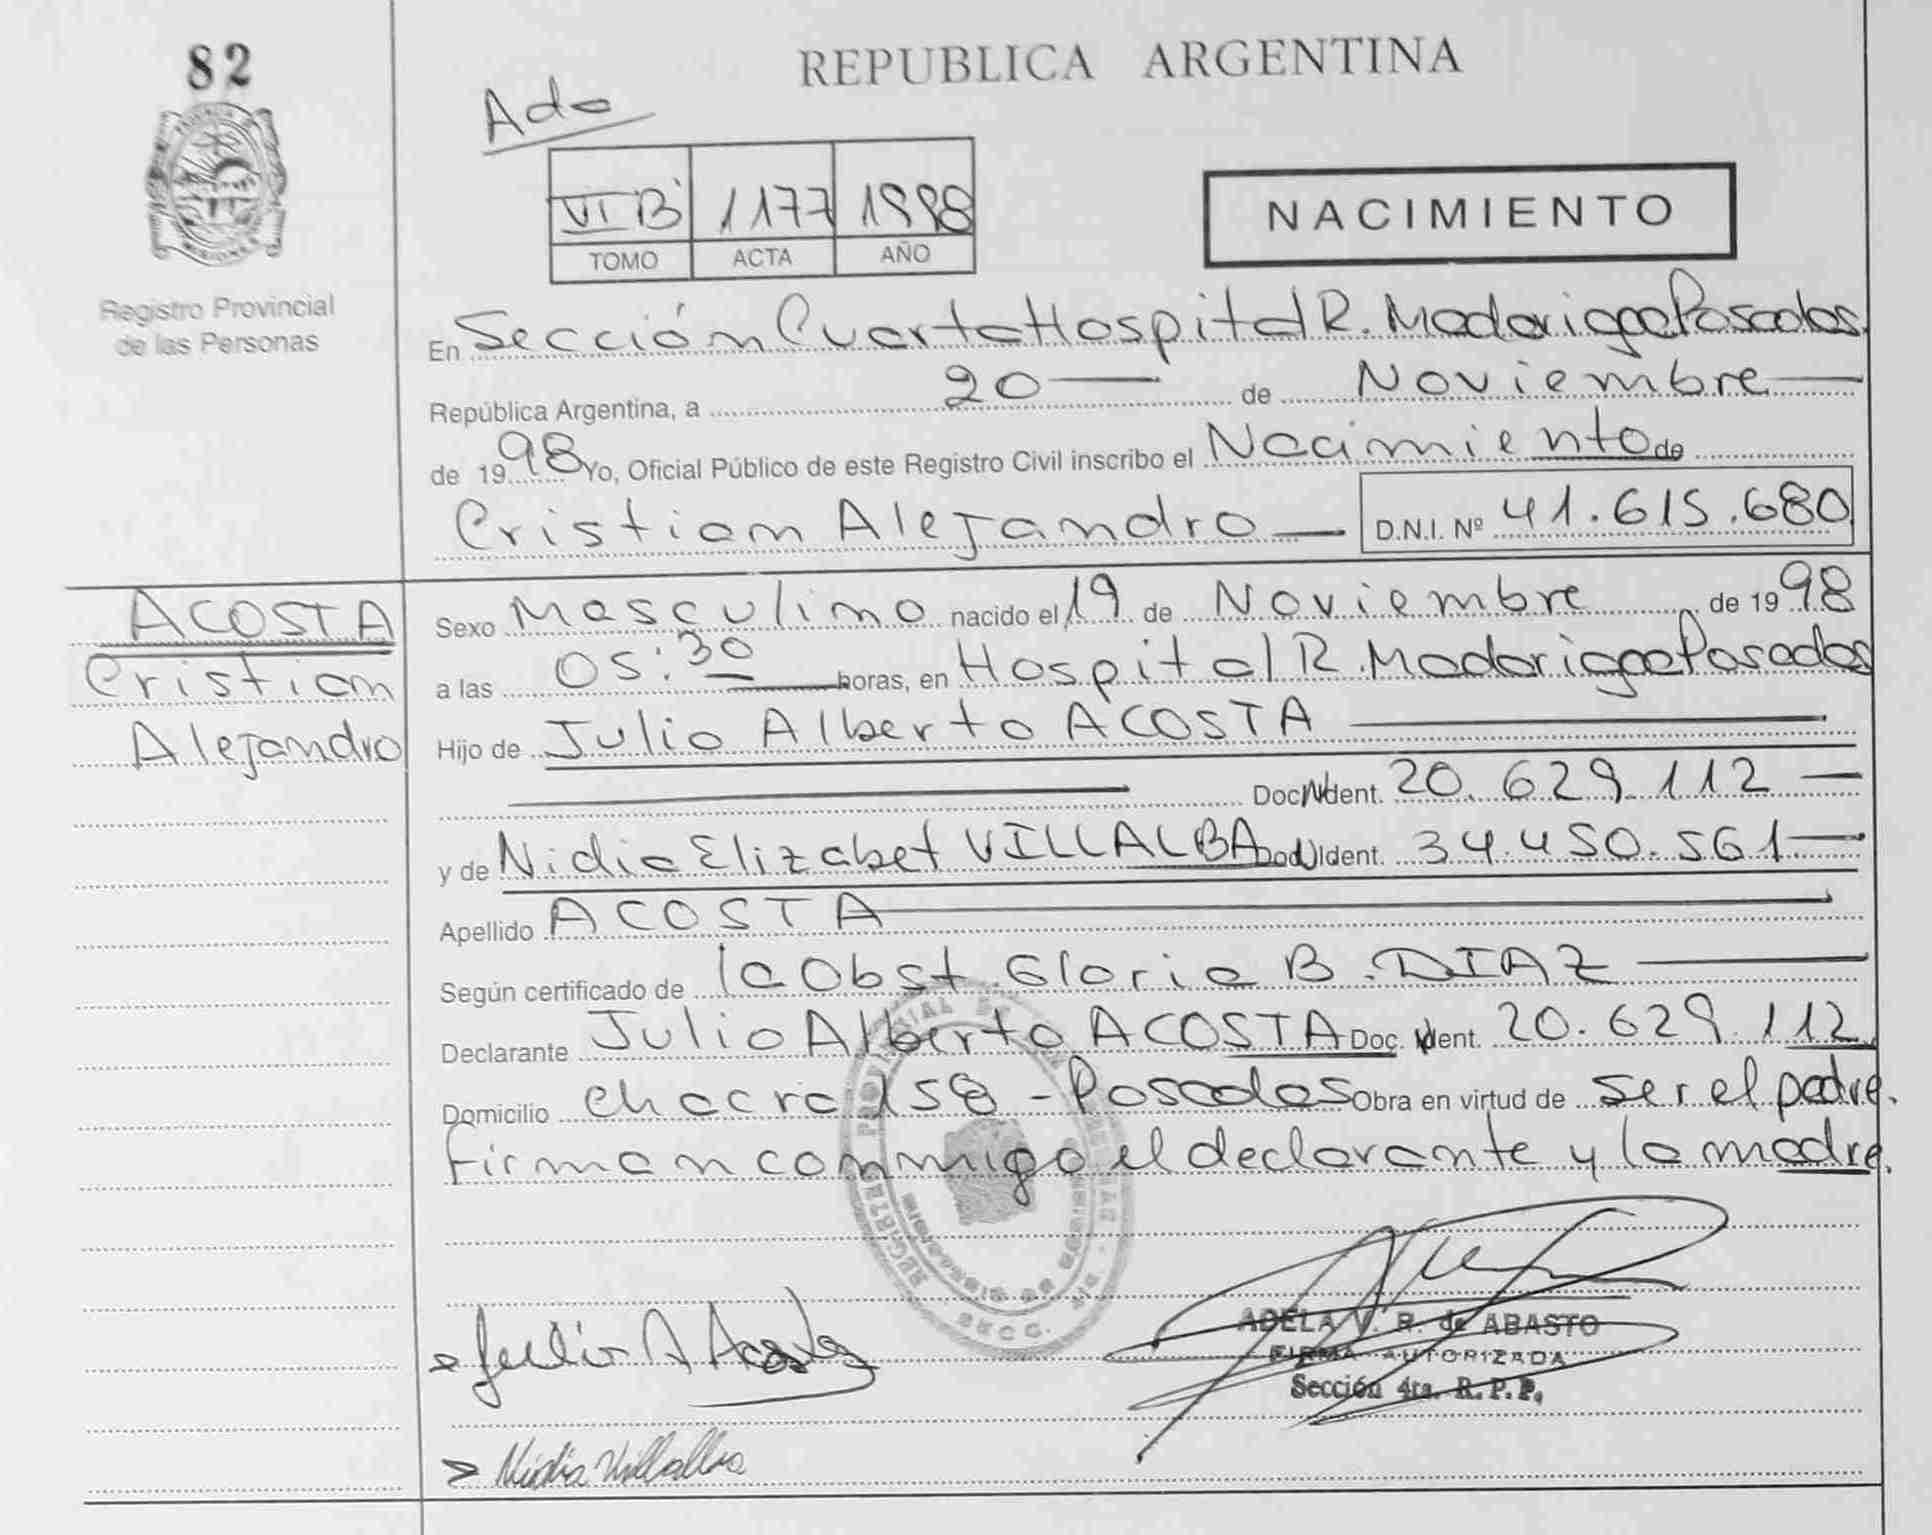 82
REPUBLICA ARGENTINA
Ado
VI B 1177 1998
TOMO ACTA AÑO
NACIMIENTO
Registro Provincial
de las Personas
En Sección Cuarta Hospital R. Madariaga Posadas.
República Argentina, a 20 — de Noviembre —
de 1998 Yo, Oficial Público de este Registro Civil inscribo el Nacimiento de
Cristian Alejandro — D.N.I. Nº 41.615.680
ACOSTA
Cristian
Alejandro
Sexo Masculino nacido el 19 de Noviembre de 1998
a las 05:30 horas, en Hospital R. Madariaga Posadas
Hijo de Julio Alberto ACOSTA
Doc. Ident. 20.629.112 —
y de Nidia Elizabet VILLALBA Doc. Ident. 34.450.561 —
Apellido ACOSTA
Según certificado de la Obst. Gloria B. DIAZ —
Declarante Julio Alberto ACOSTA Doc. Ident. 20.629.112
Domicilio chacra 158 - Posadas Obra en virtud de ser el padre.
Firman conmigo el declarante y la madre.
REGISTRO PROVINCIAL DE
Julio A Acosta
ADELA V. R. de ABASTO
FIRMA AUTORIZADA
Sección 4ta. R. P. P.
Nidia Villalba